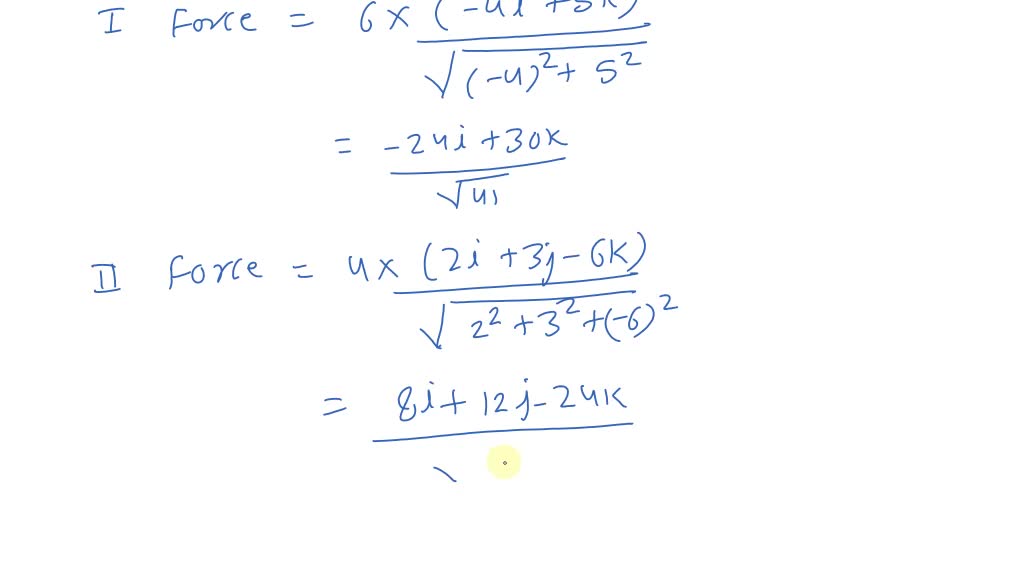 I Force = 6 × (-4i + 5k)
√(-4)² + 5²
= -24i + 30k
√41
II Force = 4 × (2i + 3j - 6k)
√2² + 3² + (-6)²
= 8i + 12j - 24k